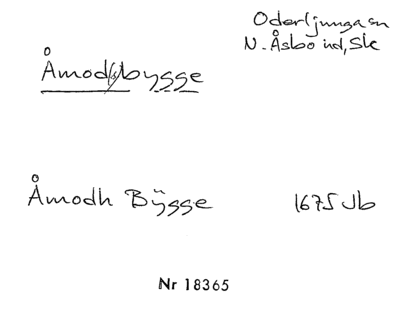 Oderljunga sn
N. Åsbo hd, Sk
Åmod(s)bygge
Åmodh Bÿgge 1675 Jb
Nr 18365